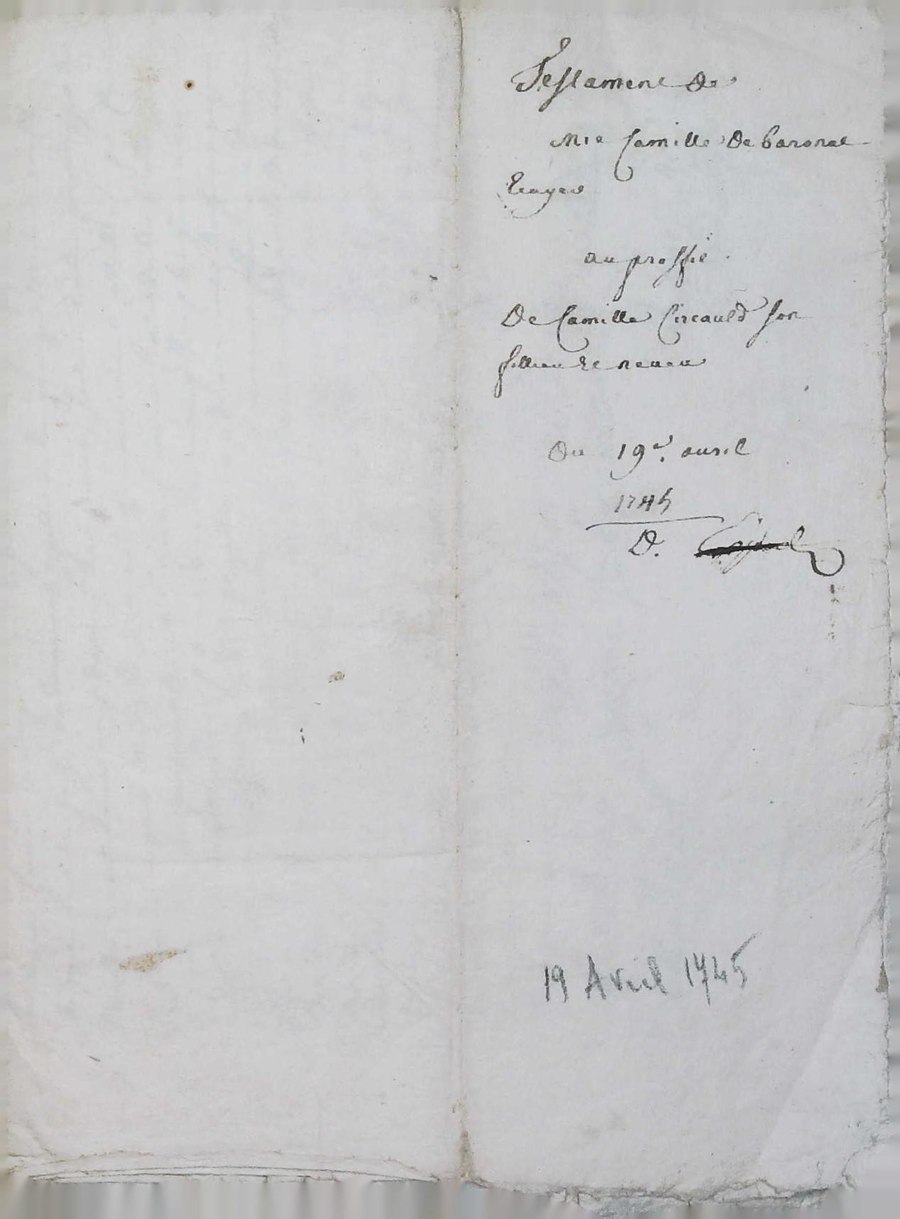 Testament De
Mre Camille De baronat
Ecuyer
au proffit
De Camille Circauld son
fillieu Et neveu
Du 19e. avril
1745
D.
19 Avril 1745